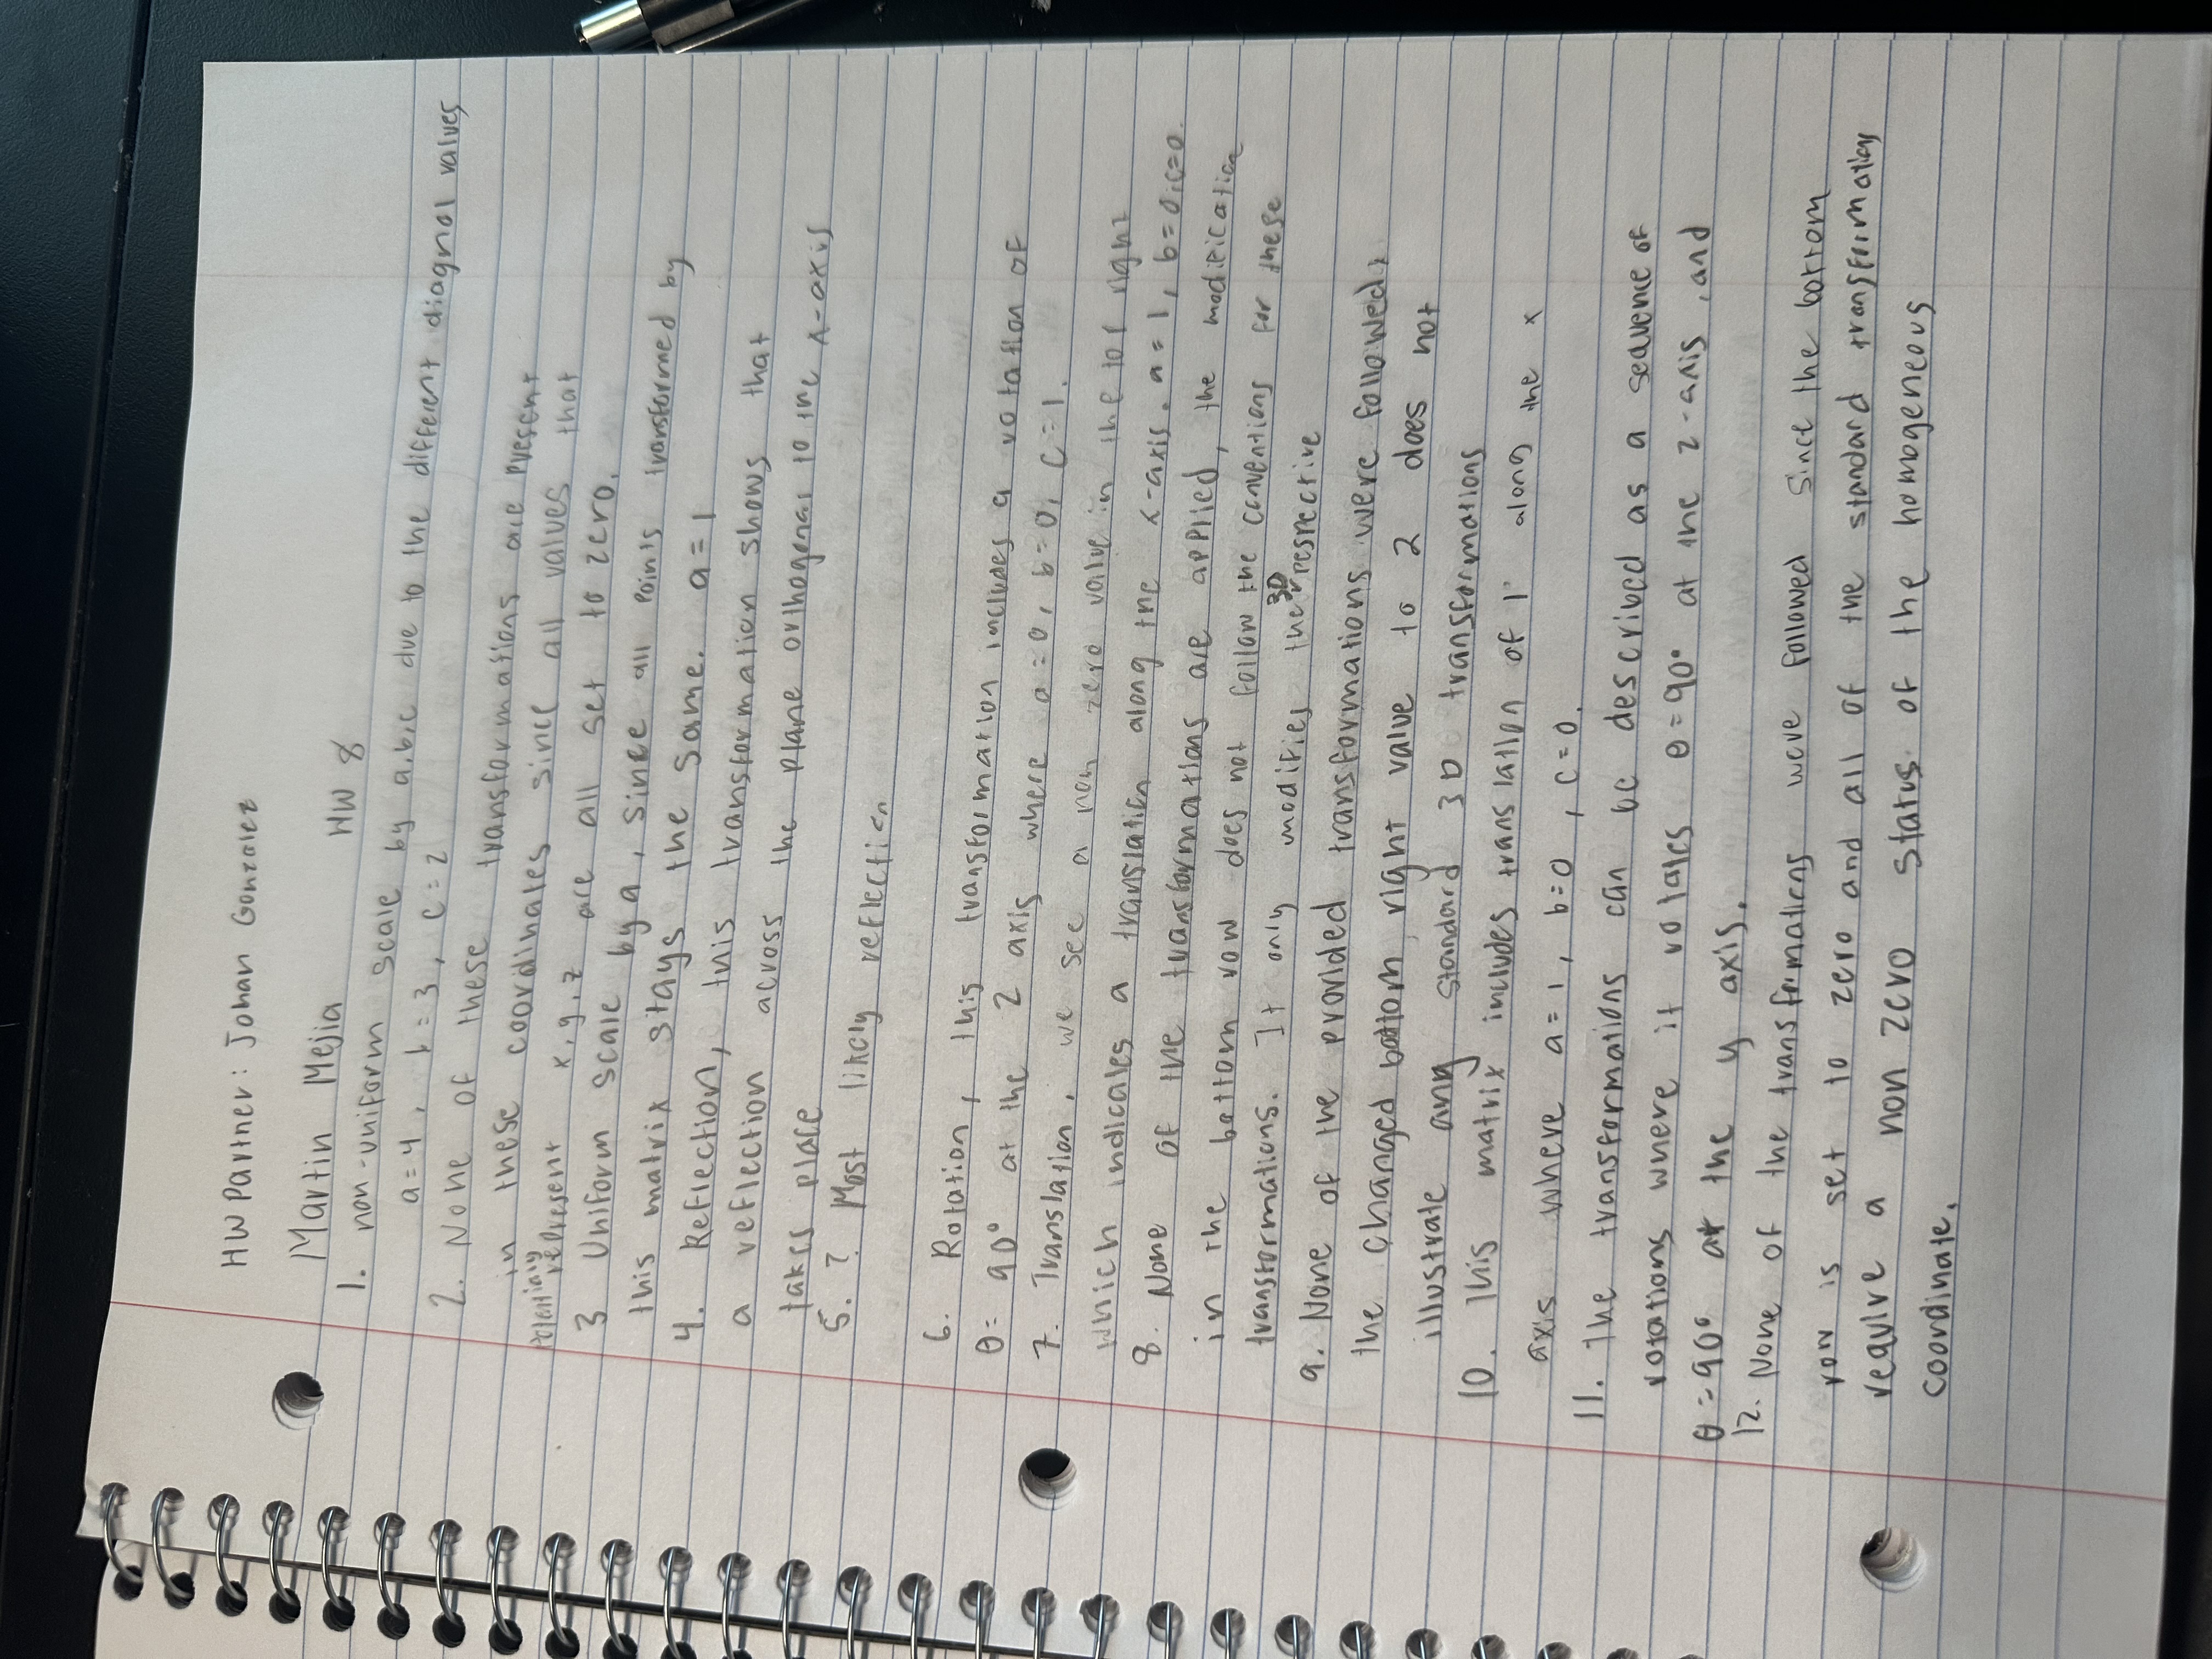 HW Partner: Johan Gonzalez
Martin Mejia HW 8
1. non-uniform scale by a,b,c due to the different diagnol values
a=4, b=3, c=2
2. None of these transformations are present
in these coordinates since all values that
potentialy represent x,y,z are all set to zero.
3 Uniform scale by a, since all points transformed by
this matrix stays the same. a=1
4. Reflection, this transformation shows that
a reflection across the plane orthogonal to the x-axis
takes place
5. ? Most likely reflection
6. Rotation, this transformation includes a rotation of
θ= 90° at the z axis where a=0, b=0, c=1.
7. Translation, we see a non zero value in the top right
which indicates a translation along the x-axis. a=1, b=0, c=0.
8. None of the transformations are applied, the modification
in the bottom row does not follow the conventions for these
transformations. It only modifies the 3D respective
9. None of the provided transformations were followed,
the changed bottom, right value to 2 does not
illustrate any standard 3D transformations
10. This matrix includes translation of 1 along the x
axis where a=1, b=0, c=0.
11. The transformations can be described as a sequence of
rotations where it rotates θ=90° at the z-axis, and
θ=90° at the y axis.
12. None of the transformations were followed since the bottom
row is set to zero and all of the standard transformations
require a non zero status of the homogeneous
coordinate.